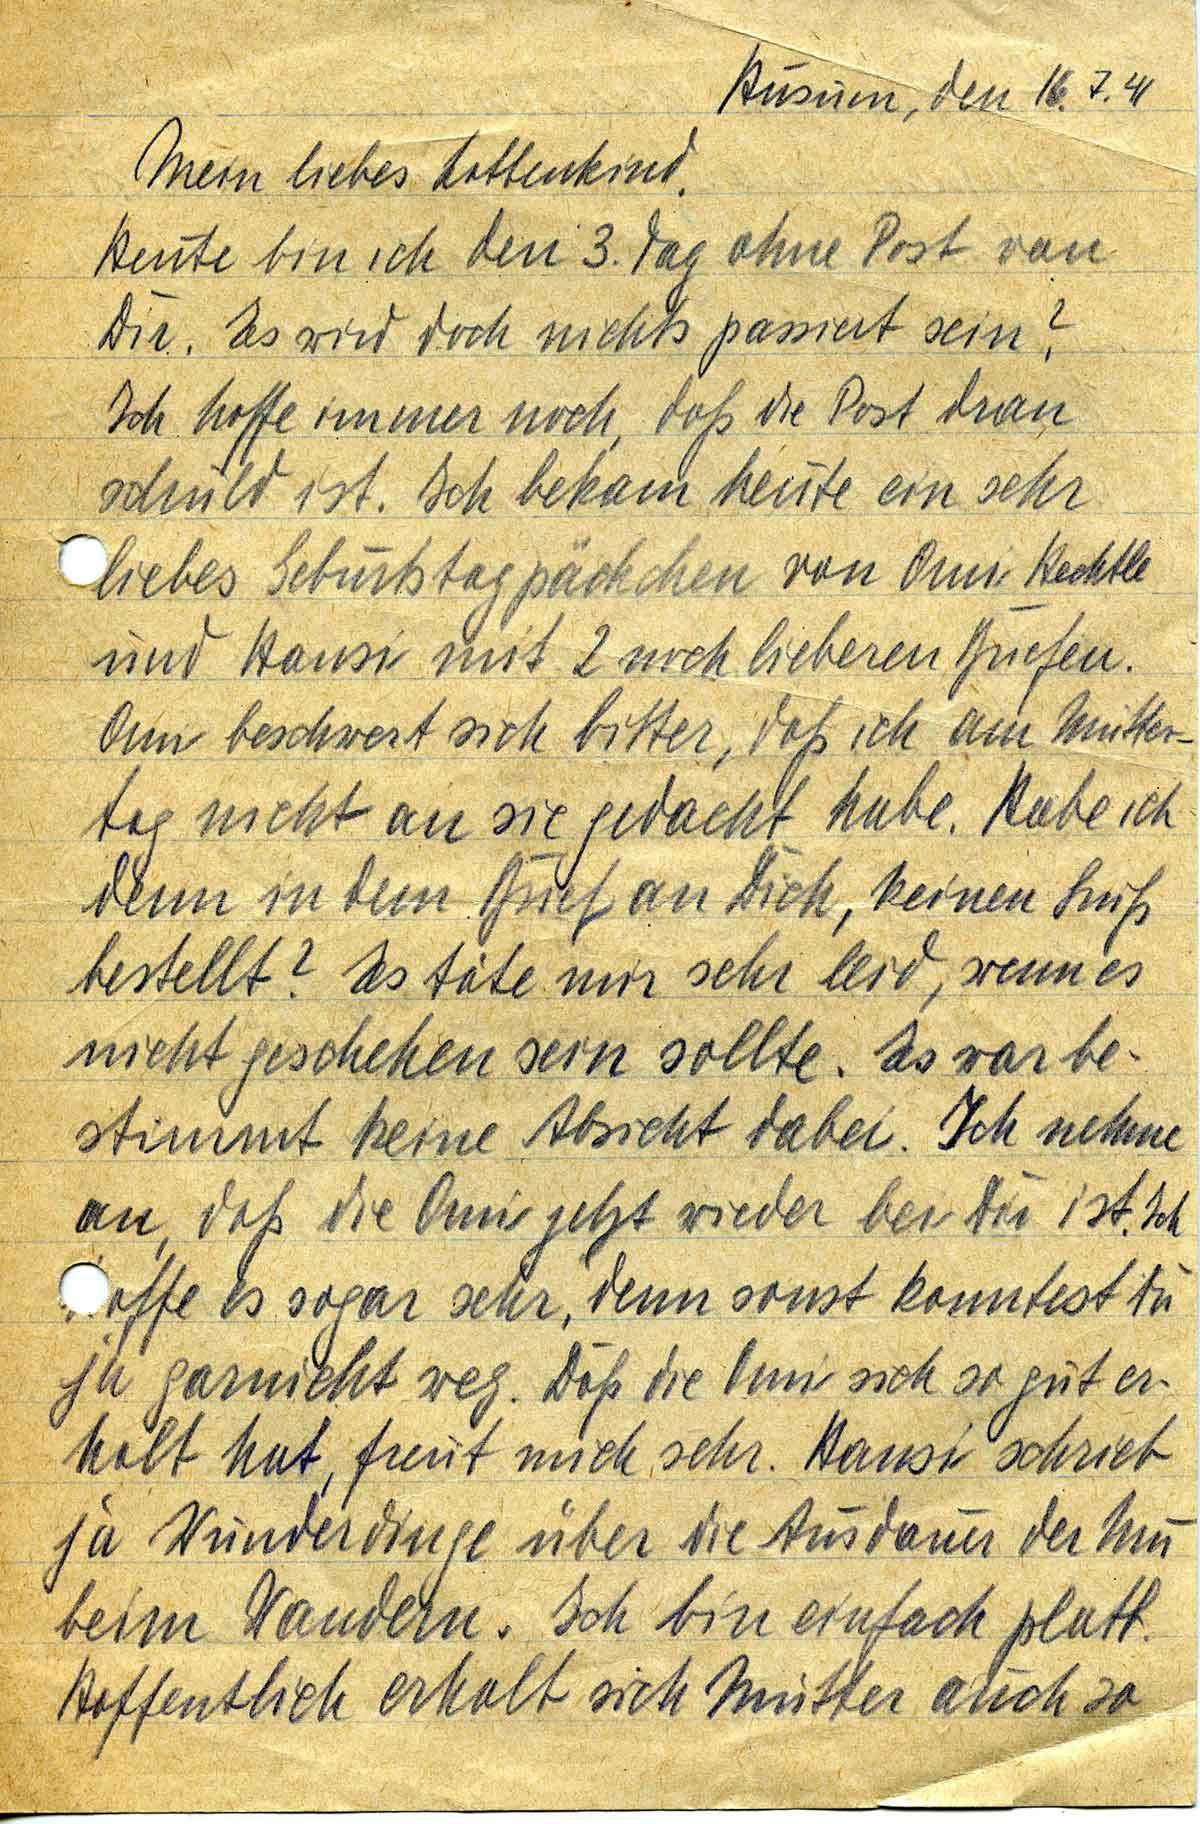 Husum, den 16. 7. 41
Mein liebes Lottenkind.
Heute bin ich den 3. Tag ohne Post von
Dir. Es wird doch nichts passiert sein?
Ich hoffe immer noch, daß die Post dran
schuld ist. Ich bekam heute ein sehr
liebes Geburtstagpäckchen von Omi Hechtle
und Hansi mit 2 noch lieberen Briefen.
Omi beschwert sich bitter, daß ich am Mutter-
tag nicht an sie gedacht habe. Habe ich
denn in dem Brief an Dich, keinen Gruß
bestellt? Es täte mir sehr leid, wenn es
nicht geschehen sein sollte. Es war be-
stimmt keine Absicht dabei. Ich nehme
an, daß die Omi jetzt wieder bei Dir ist. Ich
hoffe es sogar sehr, denn sonst konntest Du
ja garnicht weg. Daß die Omi sich so gut er-
holt hat, freut mich sehr. Hansi schrieb
ja Wunderdinge über die Ausdauer der Omi
beim Wandern. Ich bin einfach platt.
Hoffentlich erholt sich Mutter auch so